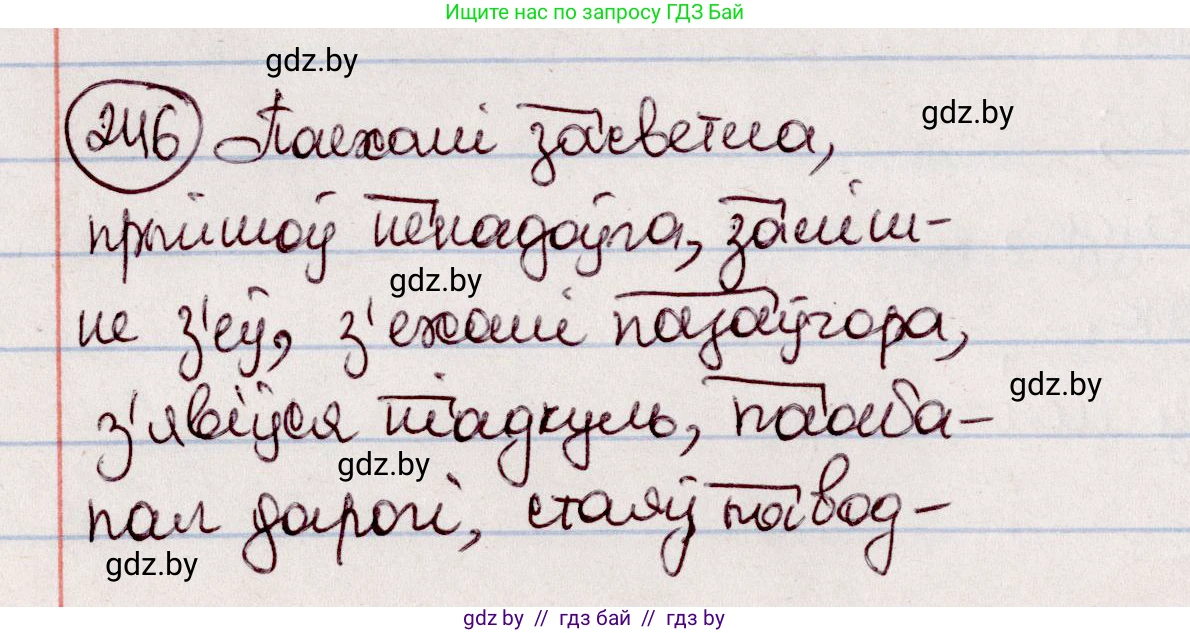 Ищите нас по запросу ГДЗ Бай
gdz.by
246 Паехалі засветла,
gdz.by
gdz.by
прыйшоў ненадоўга, заліш-
gdz.by
не з'еў, з'ехалі пазаўчора,
gdz.by
з'явіўся ніадкуль, пааба-
gdz.by
пал дарогі, стаяў павод-
gdz.by
gdz by // гдз бай // гдз by